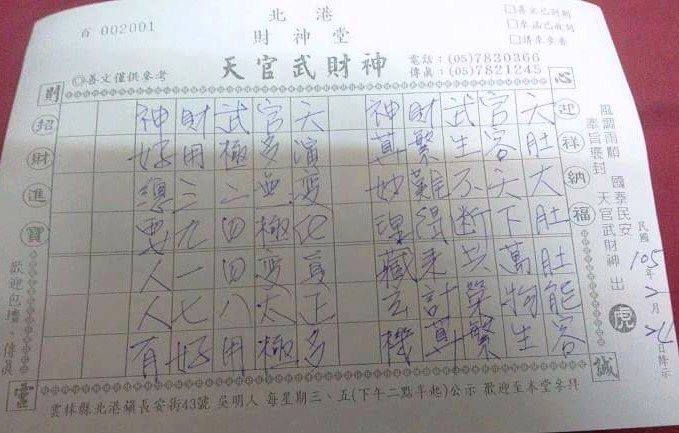 百 002001
北港
財神堂
天官武財神
◎善文僅供參考
電話:(05)7830366
傳真:(05)7821245
風調雨順 國泰民安
奉旨褒封 天官武財神 出 虎
民國105年2月24日降示
心
誠
則
靈
迎祥納福
天肚大肚肚能容
官容天下萬物生
武生不斷共榮繁
財繁難得来計算
神算妙理藏玄機
天演變化員正多
官多無極變太極
武極二四四八用
財用三九一七好
神好總要人人有
招財進寶
雲林縣北港鎮長安街43號 吳明人 每星期三、五(下午二點半起)公示 歡迎至本堂參拜